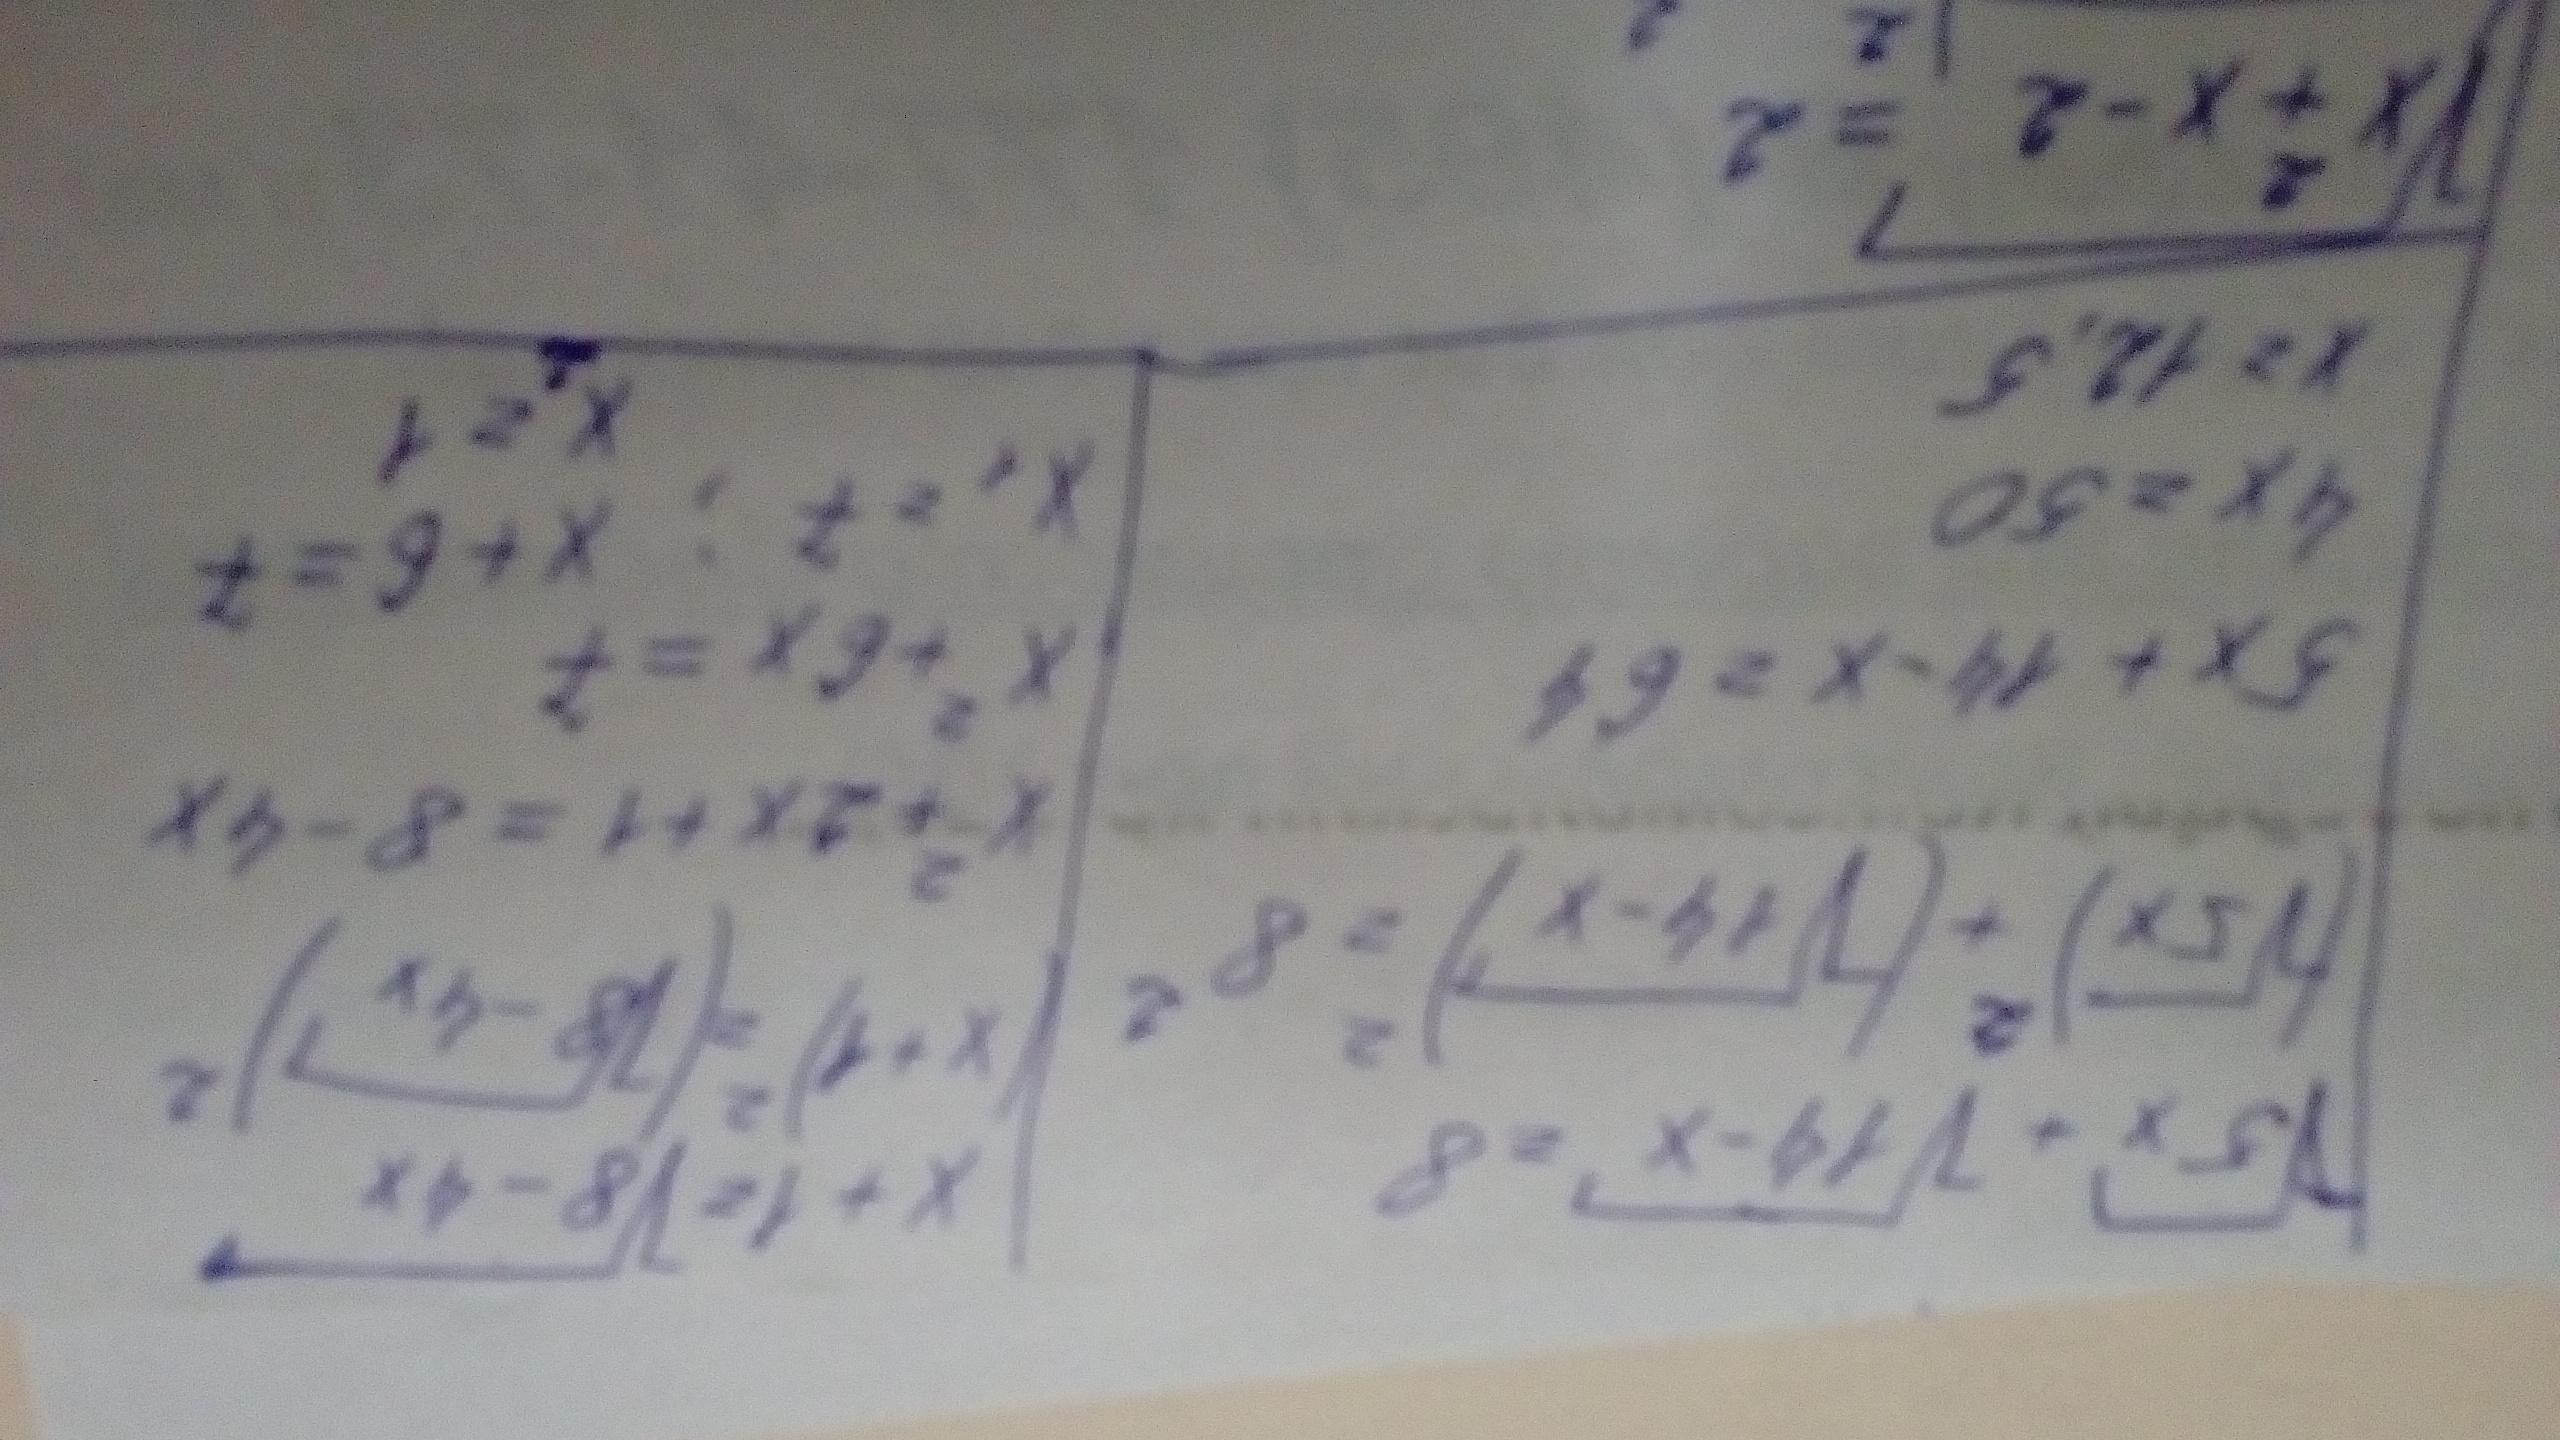 √5x + √14-x = 8
(√5x)² + (√14-x)² = 8²
5x + 14-x = 64
4x = 50
x = 12,5
x + 1 = √8-4x
(x+1)² = (√8-4x)²
x² + 2x + 1 = 8 - 4x
x² + 6x = 7
x₁ = 7; x + 6 = 7
x₂ = 1
√x² + x - 2 = 2